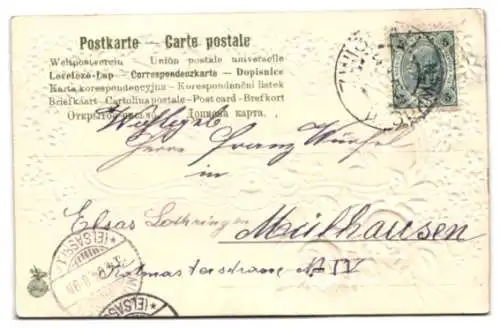 Postkarte — Carte postale
Weltpostverein — Union postale universelle
Levelező-Lap — Correspondenzkarte — Dopisnice
Karta korespondencyjna — Korespondenční listek
Briefkaart — Cartolina postale — Post card — Brefkort
Открытое письмо — Дописна карта.
Herrn Franz
in
Elsas Lothringen Mülhausen
N IV
(ELSASS)
(ELSASS)